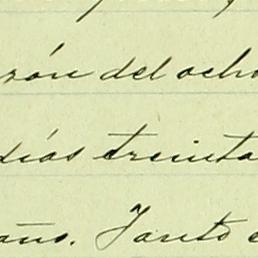 zón del ocho
días treinta
año. Tanto e